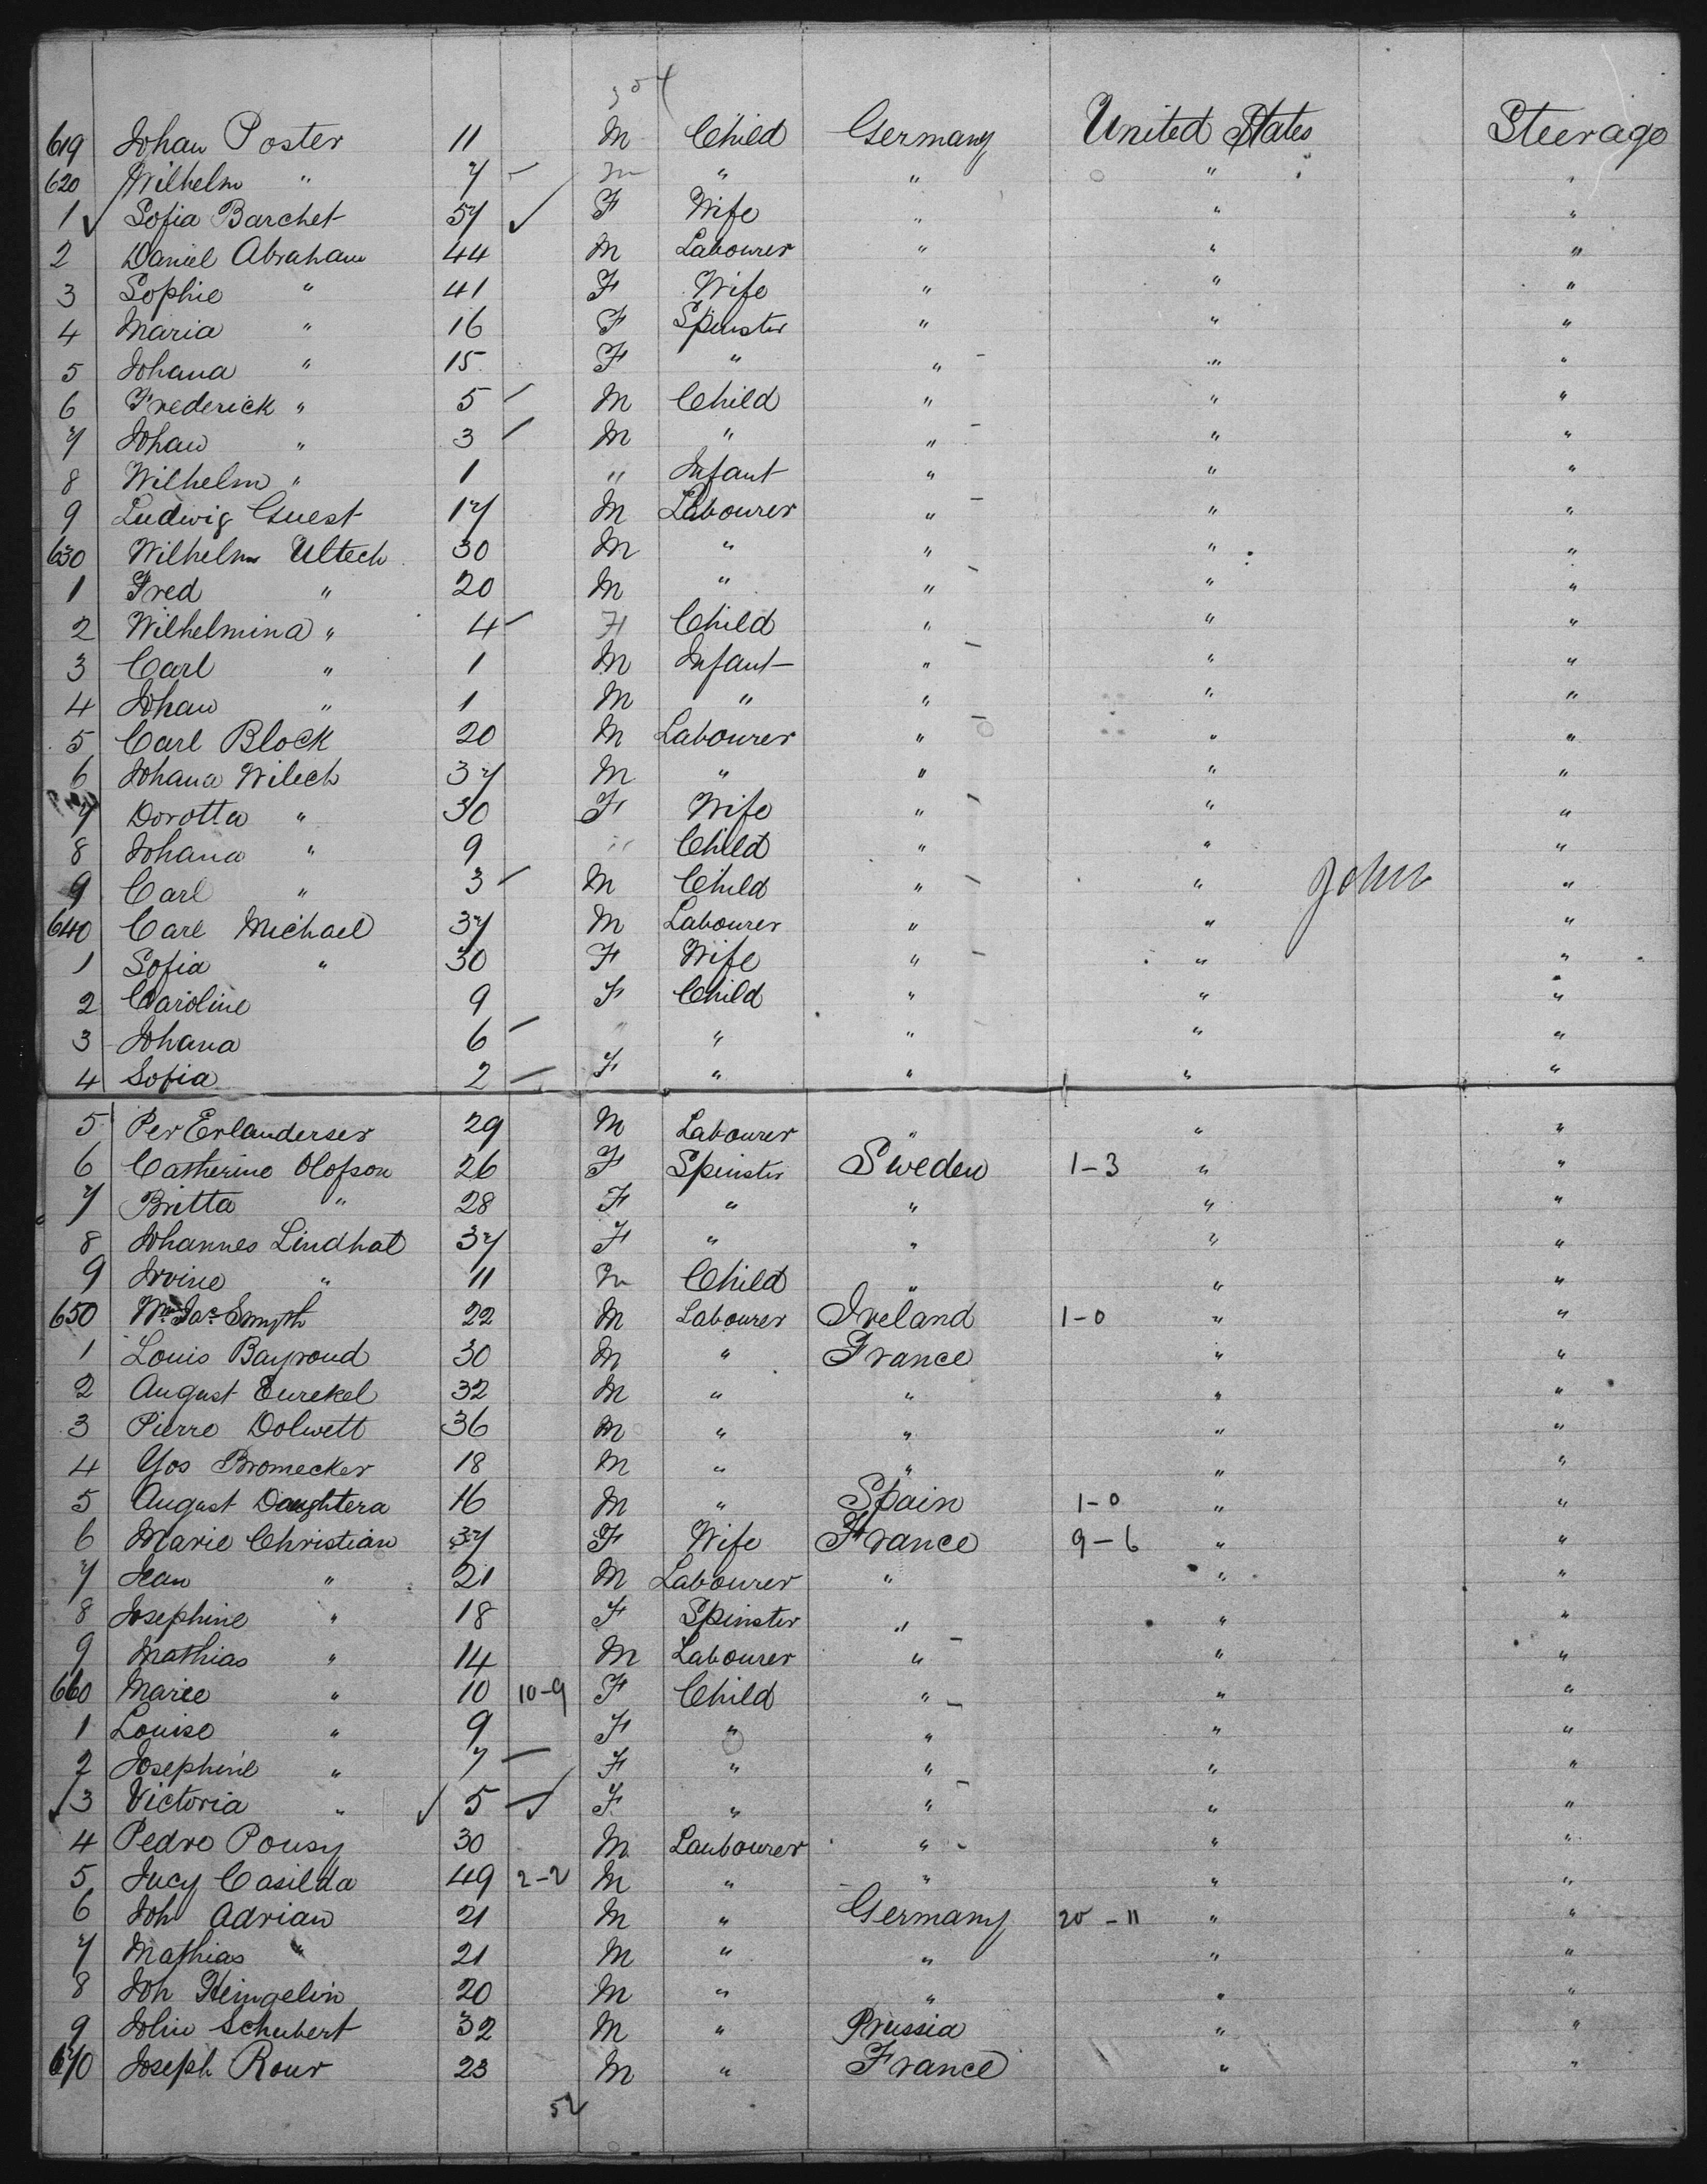 619 Johan Poster 11 M Child Germany United States Steerage
620 Wilhelm " 7 - m " " " "
1 ✓ Sofia Barchet 57 ✓ F Wife " " "
2 Daniel Abraham 44 M Labourer " " "
3 Sophie " 41 F Wife " " "
4 Maria " 16 F Spinster " " "
5 Johana " 15 F " " " "
6 Frederick " 5 - M Child " " "
7 Johan " 3 - M " " " "
8 Wilhelm " 1 " Infant " " "
9 Ludwig Guest 17 M Labourer " " "
630 Wilhelm Ultech 30 M " " " "
1 Fred " 20 M " " " "
2 Wilhelmina " 4 - F Child " " "
3 Carl " 1 M Infant " " "
4 Johan " 1 M " " " "
5 Carl Block 20 M Labourer " " "
6 Johana Wilech 37 M " " " "
7 Dorotta " 30 F Wife " " "
8 Johana " 9 " Child " " "
9 Carl " 3 - M Child " " John "
640 Carl Michael 37 M Labourer " " "
1 Sofia " 30 F Wife " " "
2 Caroline 9 F Child " " "
3 Johana 6 - " " " " "
4 Sofia 2 - F " " " "
5 Per Erlanderser 29 M Labourer " " "
6 Catherine Olofson 26 F Spinster Sweden 1-3 " "
7 Britta " 28 F " " " "
8 Johannes Lindhal 37 F " " " "
9 Irvine " 11 m Child " " "
650 Wm Jas Smyth 22 M Labourer Ireland 1-0 " "
1 Louis Bayroud 30 M " France " "
2 August Eurekel 32 M " " " "
3 Pierre Dolwett 36 M " " " "
4 Yos Bromecker 18 M " " " "
5 August Daughtera 16 M " Spain 1-0 " "
6 Marie Christian 37 F Wife France 9-6 " "
7 Jean " 21 M Labourer " " "
8 Josephine " 18 F Spinster " " "
9 Mathias " 14 M Labourer " " "
660 Marie " 10 10-9 F Child " " "
1 Louise " 9 F " " " "
2 Josephine " 7 - F " " " "
✓ 3 Victoria " ✓ 5 - ✓ F " " " "
4 Pedro Pousy 30 M Laubourer " " "
5 Lucy Casilda 49 2-2 M " " " "
6 Joh Adrian 21 M " Germany 20-11 " "
7 Mathias " 21 M " " " "
8 Joh Heingelin 20 M " " " "
9 John Schubert 32 M " Prussia " "
670 Joseph Rour 23 M " France " "
52